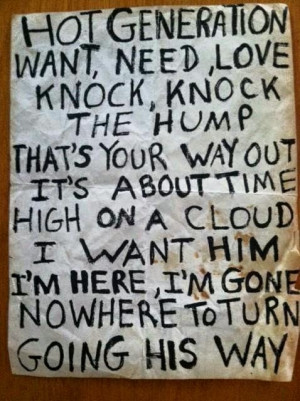 HOT GENERATION
WANT, NEED, LOVE
KNOCK, KNOCK
THE HUMP
THAT'S YOUR WAY OUT
IT'S ABOUT TIME
HIGH ON A CLOUD
I WANT HIM
I'M HERE, I'M GONE
NOWHERE To TURN
GOING HIS WAY